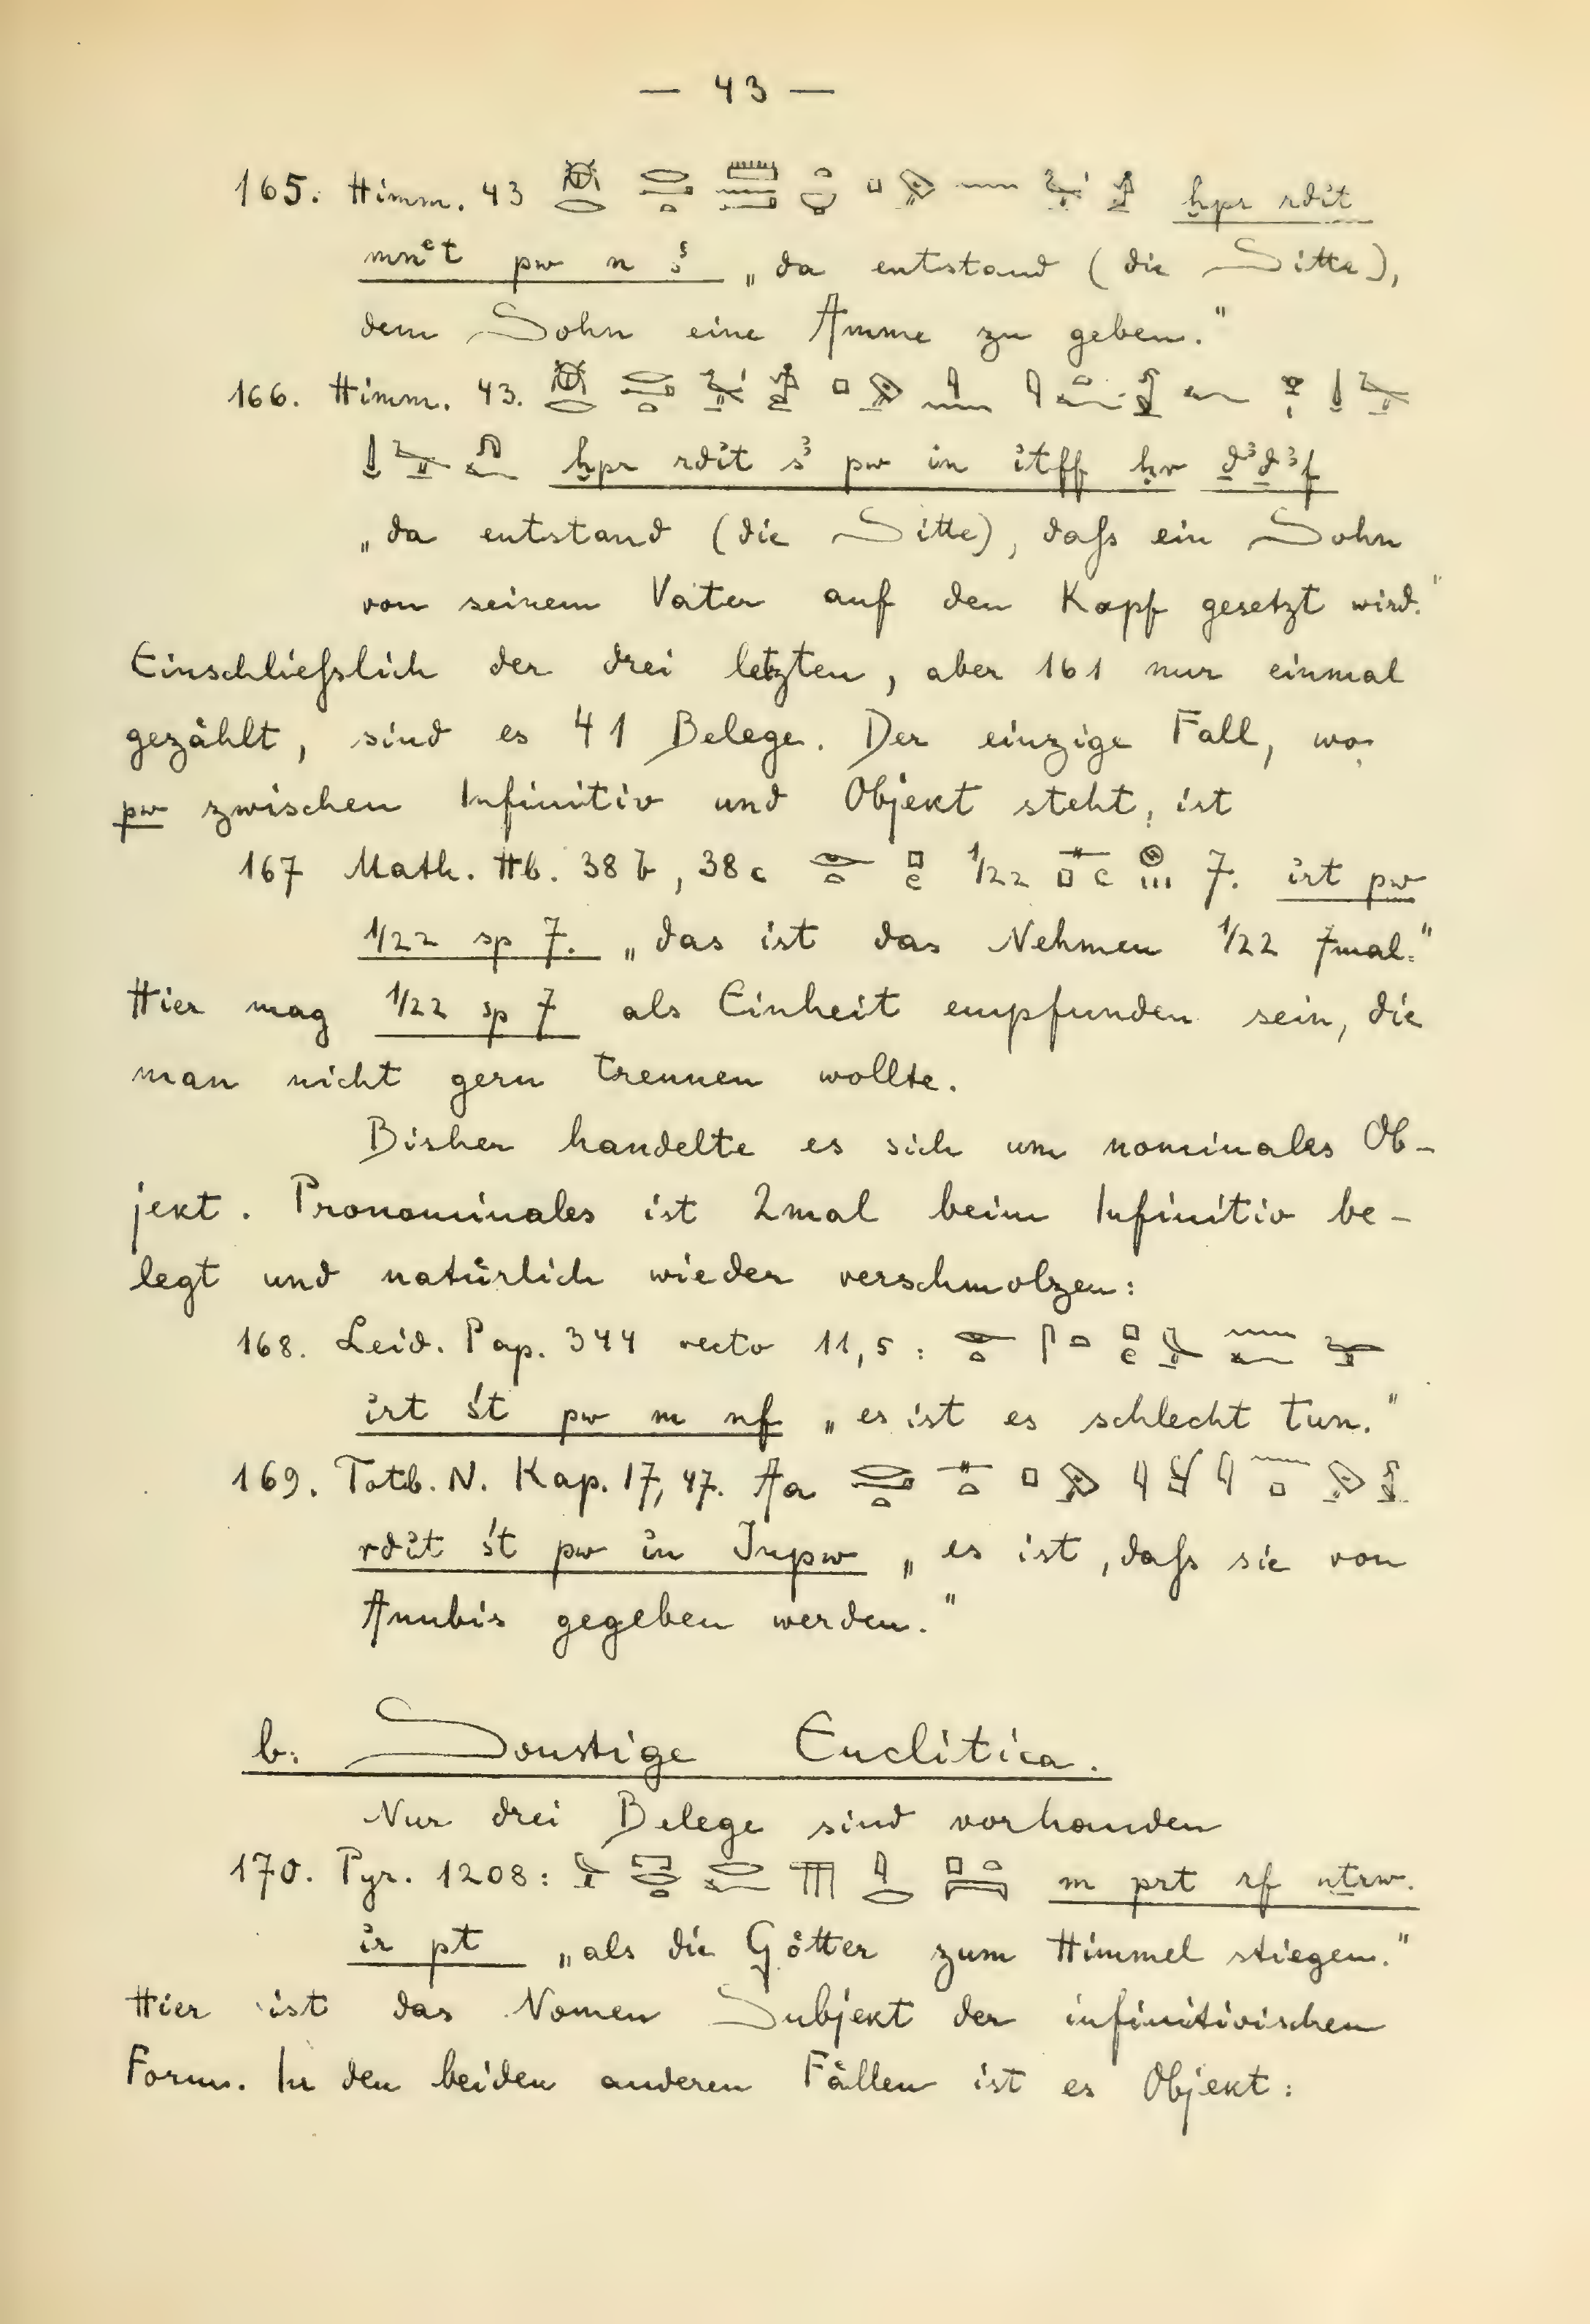 — 43 —
165. Himm. 43 ḫpr rdı̓t
mnꜥt pw n sꜣ „da entstand (die Sitte),
dem Sohn eine Amme zu geben."
166. Himm. 43.
ḫpr rdı̓t sꜣ pw ı̓n ı̓tff ḥr ḏꜣḏꜣf
„da entstand (die Sitte), daſs ein Sohn
von seinem Vater auf den Kopf gesetzt wird."
Einschlieſslich der drei letzten, aber 161 nur einmal
gezählt, sind es 41 Belege. Der einzige Fall, wo
pw zwischen Infinitiv und Objekt steht, ist
167 Math. Hb. 38 b, 38 c 1/22 7. ı̓rt pw
1/22 sp 7. „das ist das Nehmen 1/22 7mal."
Hier mag 1/22 sp 7 als Einheit empfunden sein, die
man nicht gern trennen wollte.
Bisher handelte es sich um nominales Ob-
jekt. Pronominales ist 2mal beim Infinitiv be-
legt und natürlich wieder verschmolzen:
168. Leid. Pap. 344 recto 11,5:
ı̓rt śt pw m nf „es ist es schlecht tun."
169. Totb. N. Kap. 17, 47. Aa
rdı̓t śt pw ı̓n Inpw „es ist, daſs sie von
Anubis gegeben werden."
b. Sonstige Enclitica.
Nur drei Belege sind vorhanden
170. Pyr. 1208: m prt rf nṯrw.
ı̓r pt „als die Götter zum Himmel stiegen."
Hier ist das Nomen Subjekt der infinitivischen
Form. In den beiden anderen Fällen ist es Objekt: